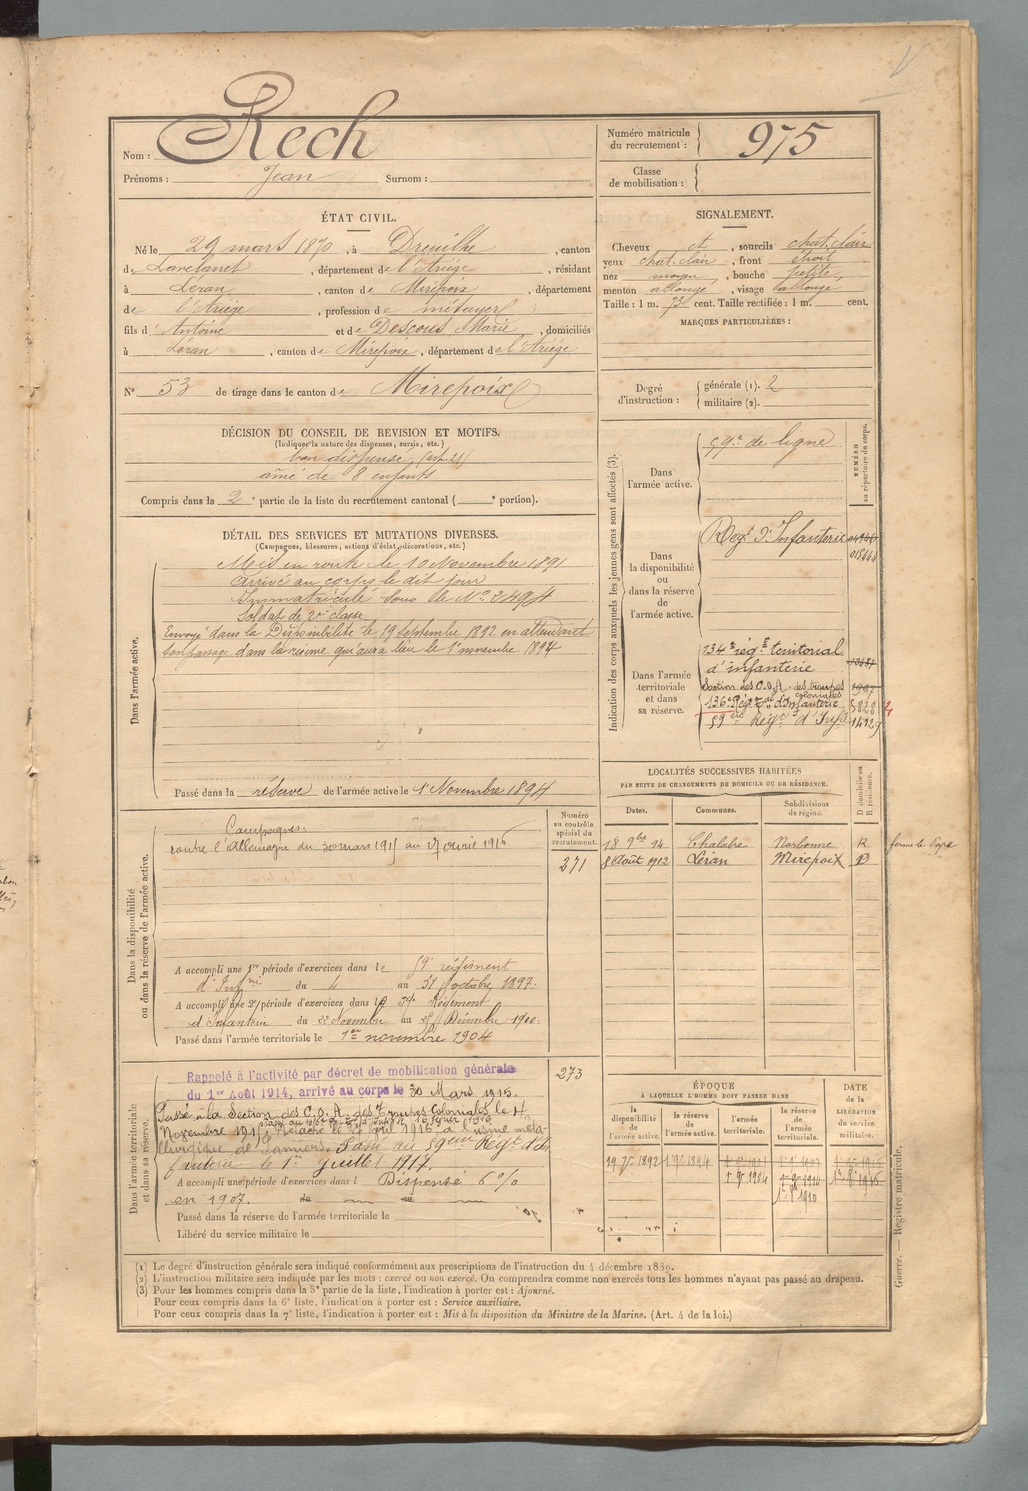 Nom : Rech
Prénoms : Jean Surnom :
Numéro matricule
du recrutement : 975
Classe
de mobilisation :
ÉTAT CIVIL.
Né le 29 mars 1870, à Dreuilhe, canton
de Lavelanet, département de l'Ariége, résidant
à Léran, canton de Mirepoix, département
de l'Ariége, profession de métayer
fils d'Antoine et de Descous Marie, domiciliés
à Léran, canton de Mirepoix, département de l'Ariége
N° 53 de tirage dans le canton de Mirepoix
SIGNALEMENT.
Cheveux et, sourcils chat. clair
yeux chat. clair, front étroit
nez moyen, bouche petite
menton allongé, visage allongé
Taille : 1 m. cent. Taille rectifiée : 1 m. cent.
MARQUES PARTICULIÈRES :
Degré
d'instruction :
générale (1). 2
militaire (2).
DÉCISION DU CONSEIL DE REVISION ET MOTIFS.
(Indiquer la nature des dispenses, sursis, etc.)
bon dispensé (art. 21)
aîné de 8 enfants
Compris dans la 2e partie de la liste du recrutement cantonal ( e portion).
DÉTAIL DES SERVICES ET MUTATIONS DIVERSES.
(Campagnes, blessures, actions d'éclat, décorations, etc.)
Dans l'armée active.
Mis en route le 10 Novembre 1891
Arrivé au corps le dit jour
Immatriculé sous le N°
Soldat de 2e classe
Envoyé dans la Disponibilité le 19 Septembre 1892 en attendant
son passage dans la réserve qui aura lieu le 1er novembre 1894
Passé dans la réserve de l'armée active le 1er Novembre 1894
Indication des corps auxquels les jeunes gens sont affectés (3).
NUMÉRO
au répertoire du corps.
Dans
l'armée active.
59e de ligne
Dans
la disponibilité
ou dans la réserve
de
l'armée active.
Regt d'Infanterie
015444
Dans l'armée
territoriale
et dans
sa réserve.
134e rég.t territorial
d'infanterie
Section des C.O.A. des troupes
coloniales
136e Régt Tal d'Infanterie
59e Régt d'Infie 14929
LOCALITÉS SUCCESSIVES HABITÉES
PAR SUITE DE CHANGEMENTS DE DOMICILE OU DE RÉSIDENCE.
Dates. Communes. Subdivisions
de région. D domicile ou
R résidence.
18 9bre 94 Chalabre Narbonne R ferme le Pape
8 Août 1912 Léran Mirepoix D
Dans la disponibilité
ou dans la réserve de l'armée active.
Numéro
au contrôle
spécial du
recrutement.
271
Campagnes.
contre l'Allemagne du 30 mars 1915 au 27 avril 1916
A accompli une 1re période d'exercices dans le 59e régiment
d'Infrie du 4 au 31 octobre 1897.
A accompli une 2e période d'exercices dans le 59e Régiment
d'Infanterie du 28 Novembre au 25 Décembre 1900.
Passé dans l'armée territoriale le 1er novembre 1904
Dans l'armée territoriale
et dans sa réserve.
273
Rappelé à l'activité par décret de mobilisation générale
du 1er Août 1914, arrivé au corps le 30 Mars 1915.
Passé à la Section des C.O.A. des Troupes Coloniales le 4
Novembre 1915. Détaché le 27 avril 1916 à l'usine méta-
llurgique de Pamiers. Passé au 59ème Régt d'In-
fanterie le 1er Juillet 1917.
A accompli une période d'exercices dans l Dispensé 6%
en 1907. du au
Passé dans la réserve de l'armée territoriale le
Libéré du service militaire le
ÉPOQUE
À LAQUELLE L'HOMME DOIT PASSER DANS
la
disponibilité
de
l'armée active.
la réserve
de
l'armée active.
l'armée
territoriale.
la réserve
de
l'armée
territoriale.
DATE
de la
LIBÉRATION
du service
militaire.
19 7bre 1892 1er 9bre 1894
1er 9bre 1904
(1) Le degré d'instruction générale sera indiqué conformément aux prescriptions de l'instruction du 4 décembre 1889.
(2) L'instruction militaire sera indiquée par les mots : exercé ou non exercé. On comprendra comme non exercés tous les hommes n'ayant pas passé au drapeau.
(3) Pour les hommes compris dans la 5e partie de la liste, l'indication à porter est : Ajourné.
Pour ceux compris dans la 6e liste, l'indication à porter est : Service auxiliaire.
Pour ceux compris dans la 7e liste, l'indication à porter est : Mis à la disposition du Ministre de la Marine. (Art. 4 de la loi.)
Guerre. — Registre matricule.